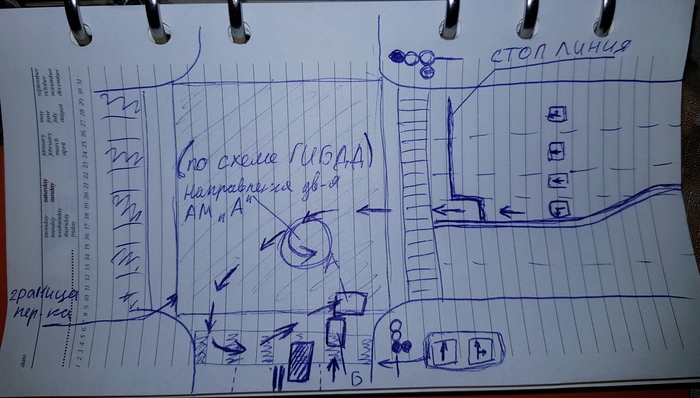 СТОП ЛИНИЯ
(по схеме ГИБДД)
направления дв-я
АМ „А"
граница
пер-ка
Б
september
october
november
december
may
june
july
august
january
february
march
april
monday
tuesday
wednesday
thursday
friday
saturday
sunday
date
1 2 3 4 5 6 7 8 9 10 11 12 13 14 15 16 17 18 19 20 21 22 23 24 25 26 27 28 29 30 31